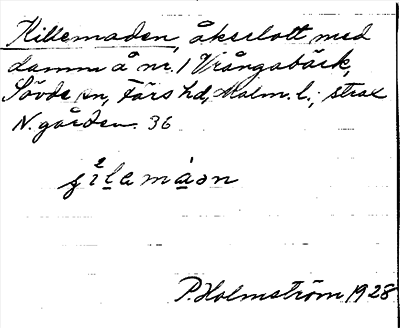 Killemaden, åkerlott med
damm å nr. 1 Vrångabäck,
Sövde sn, Färs hd, Malm. l.; strax
N. gården. 36
P. Holmström 1928